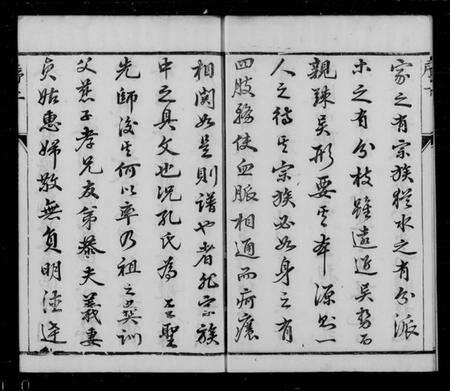 家之有宗族猶水之有分派
木之有分枝雖遠近異勢
親疎異形要其本源則一
人之待其宗族必如身之有
四肢務使血脈相通而疴癢
相関如是則譜也者非宗族
中之具文也況孔氏為 至聖
先師後其何以率乃祖之彝訓
父慈子孝兄友弟恭夫義妻
貞姑惠婦敬無負明
序